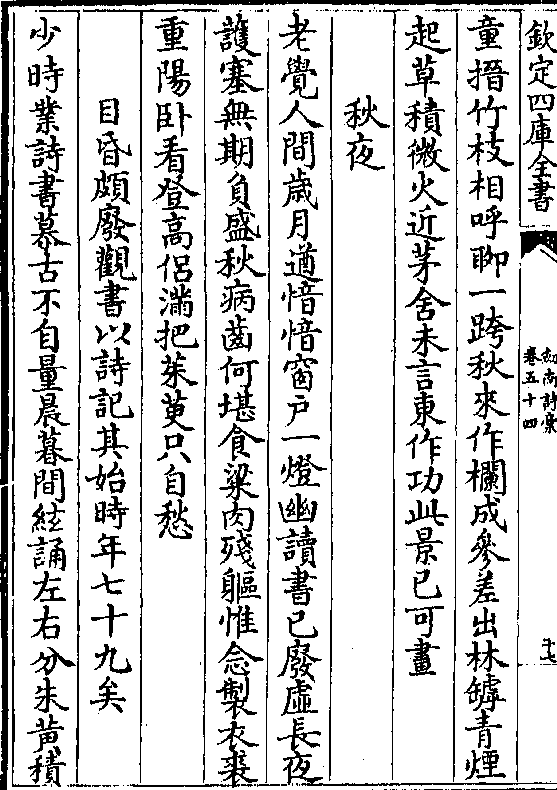 欽定四庫全書
劍南詩稾
卷五十四
十七
童搢竹枝相呼聊一跨秋來作欄成參差出林罅青煙
起草積微火近茅舍未言東作功此景已可畫
秋夜
老覺人間歲月遒愔愔窗户一燈幽讀書已廢虛長夜
護塞無期負盛秋病齒何堪食粱肉殘軀惟念製衣裘
重陽卧看登高侶滿把茱萸只自愁
目昏頗廢觀書以詩記其始時年七十九矣
少時業詩書慕古不自量晨暮間絃誦左右分朱黄積